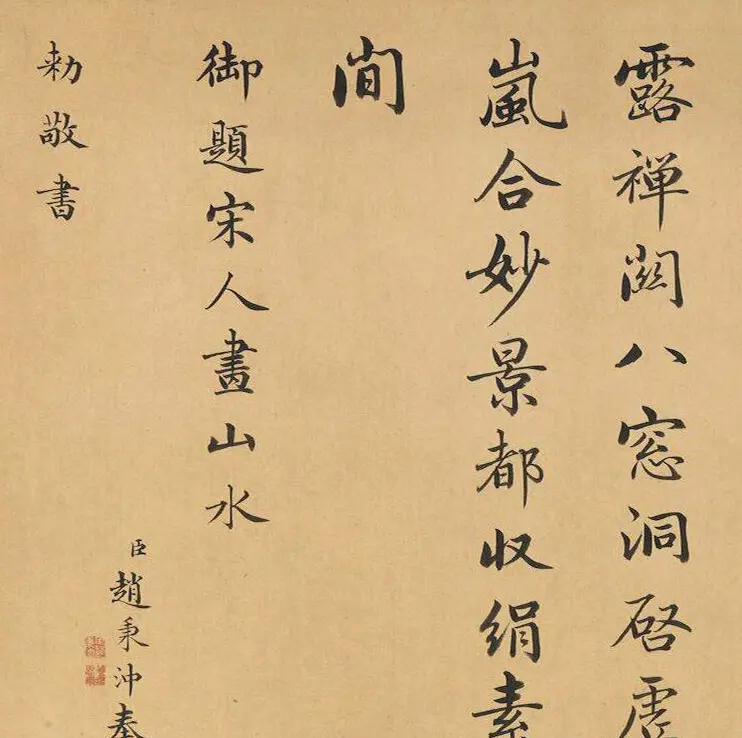 露禪關八窓洞啓虛
嵐合妙景都收絹素
間
御題宋人畫山水
臣趙秉沖奉
勅敬書